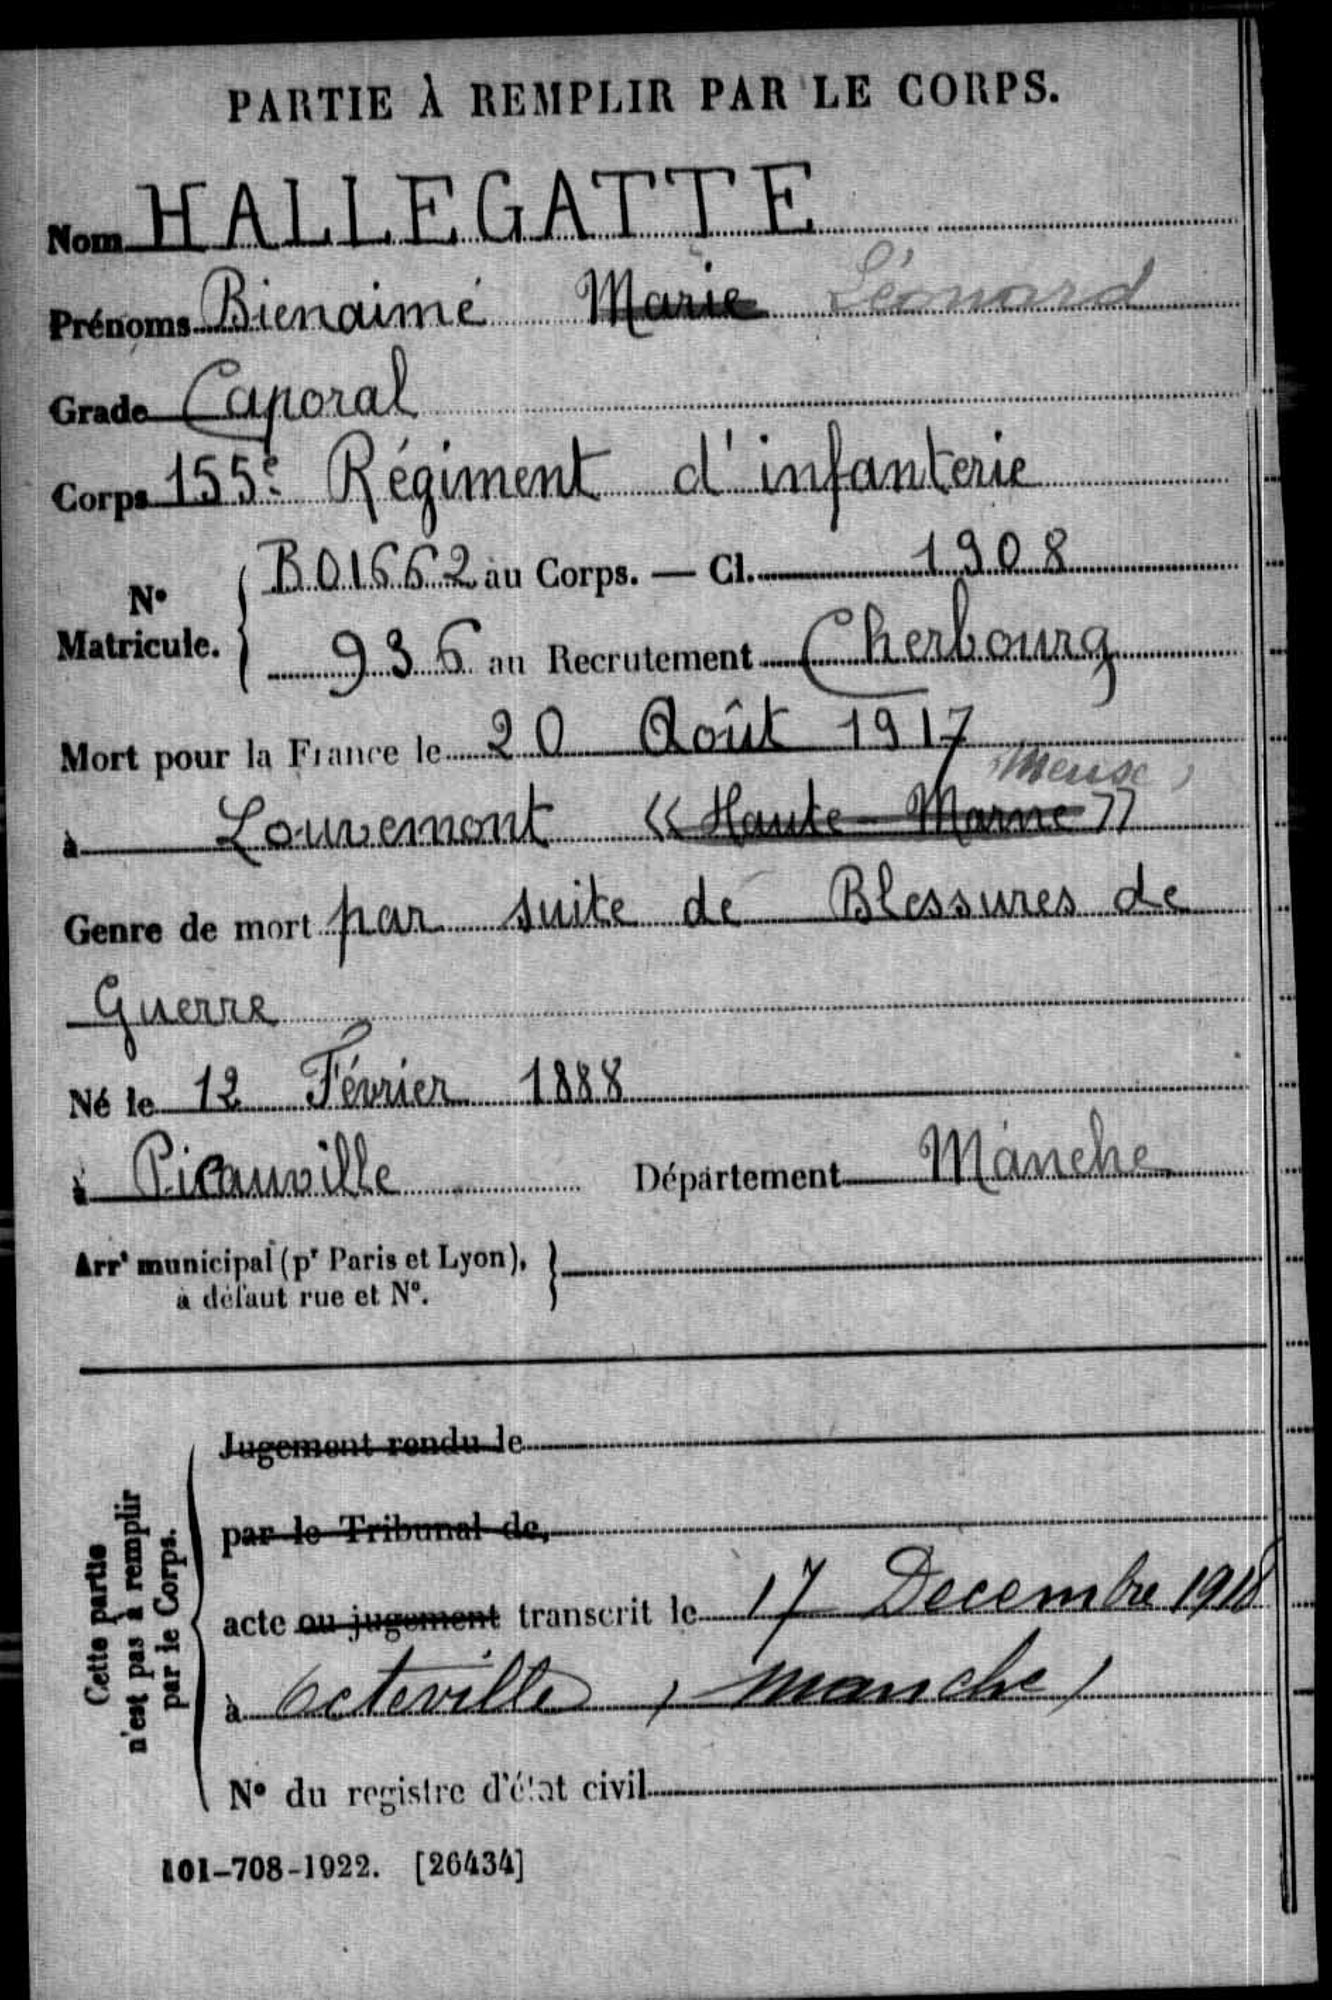 PARTIE À REMPLIR PAR LE CORPS.
Nom HALLEGATTE
Prénoms Bienaimé Marie Léonard
Grade Caporal
Corps 155e Régiment d'infanterie
N° Matricule. B01662 au Corps. — Cl. 1908
936 au Recrutement Cherbourg
Mort pour la France le 20 Août 1917
(Meuse)
à Louvemont « Haute-Marne »
Genre de mort par suite de Blessures de
Guerre
Né le 12 Février 1888
à Picauville Département Manche
Arrt municipal (pr Paris et Lyon),
à défaut rue et N°.
Cette partie
n'est pas à remplir
par le Corps.
Jugement rendu le
par le Tribunal de
acte ou jugement transcrit le 17 Decembre 1918
à Octeville (manche)
N° du registre d'état civil
101-708-1922. [26434]